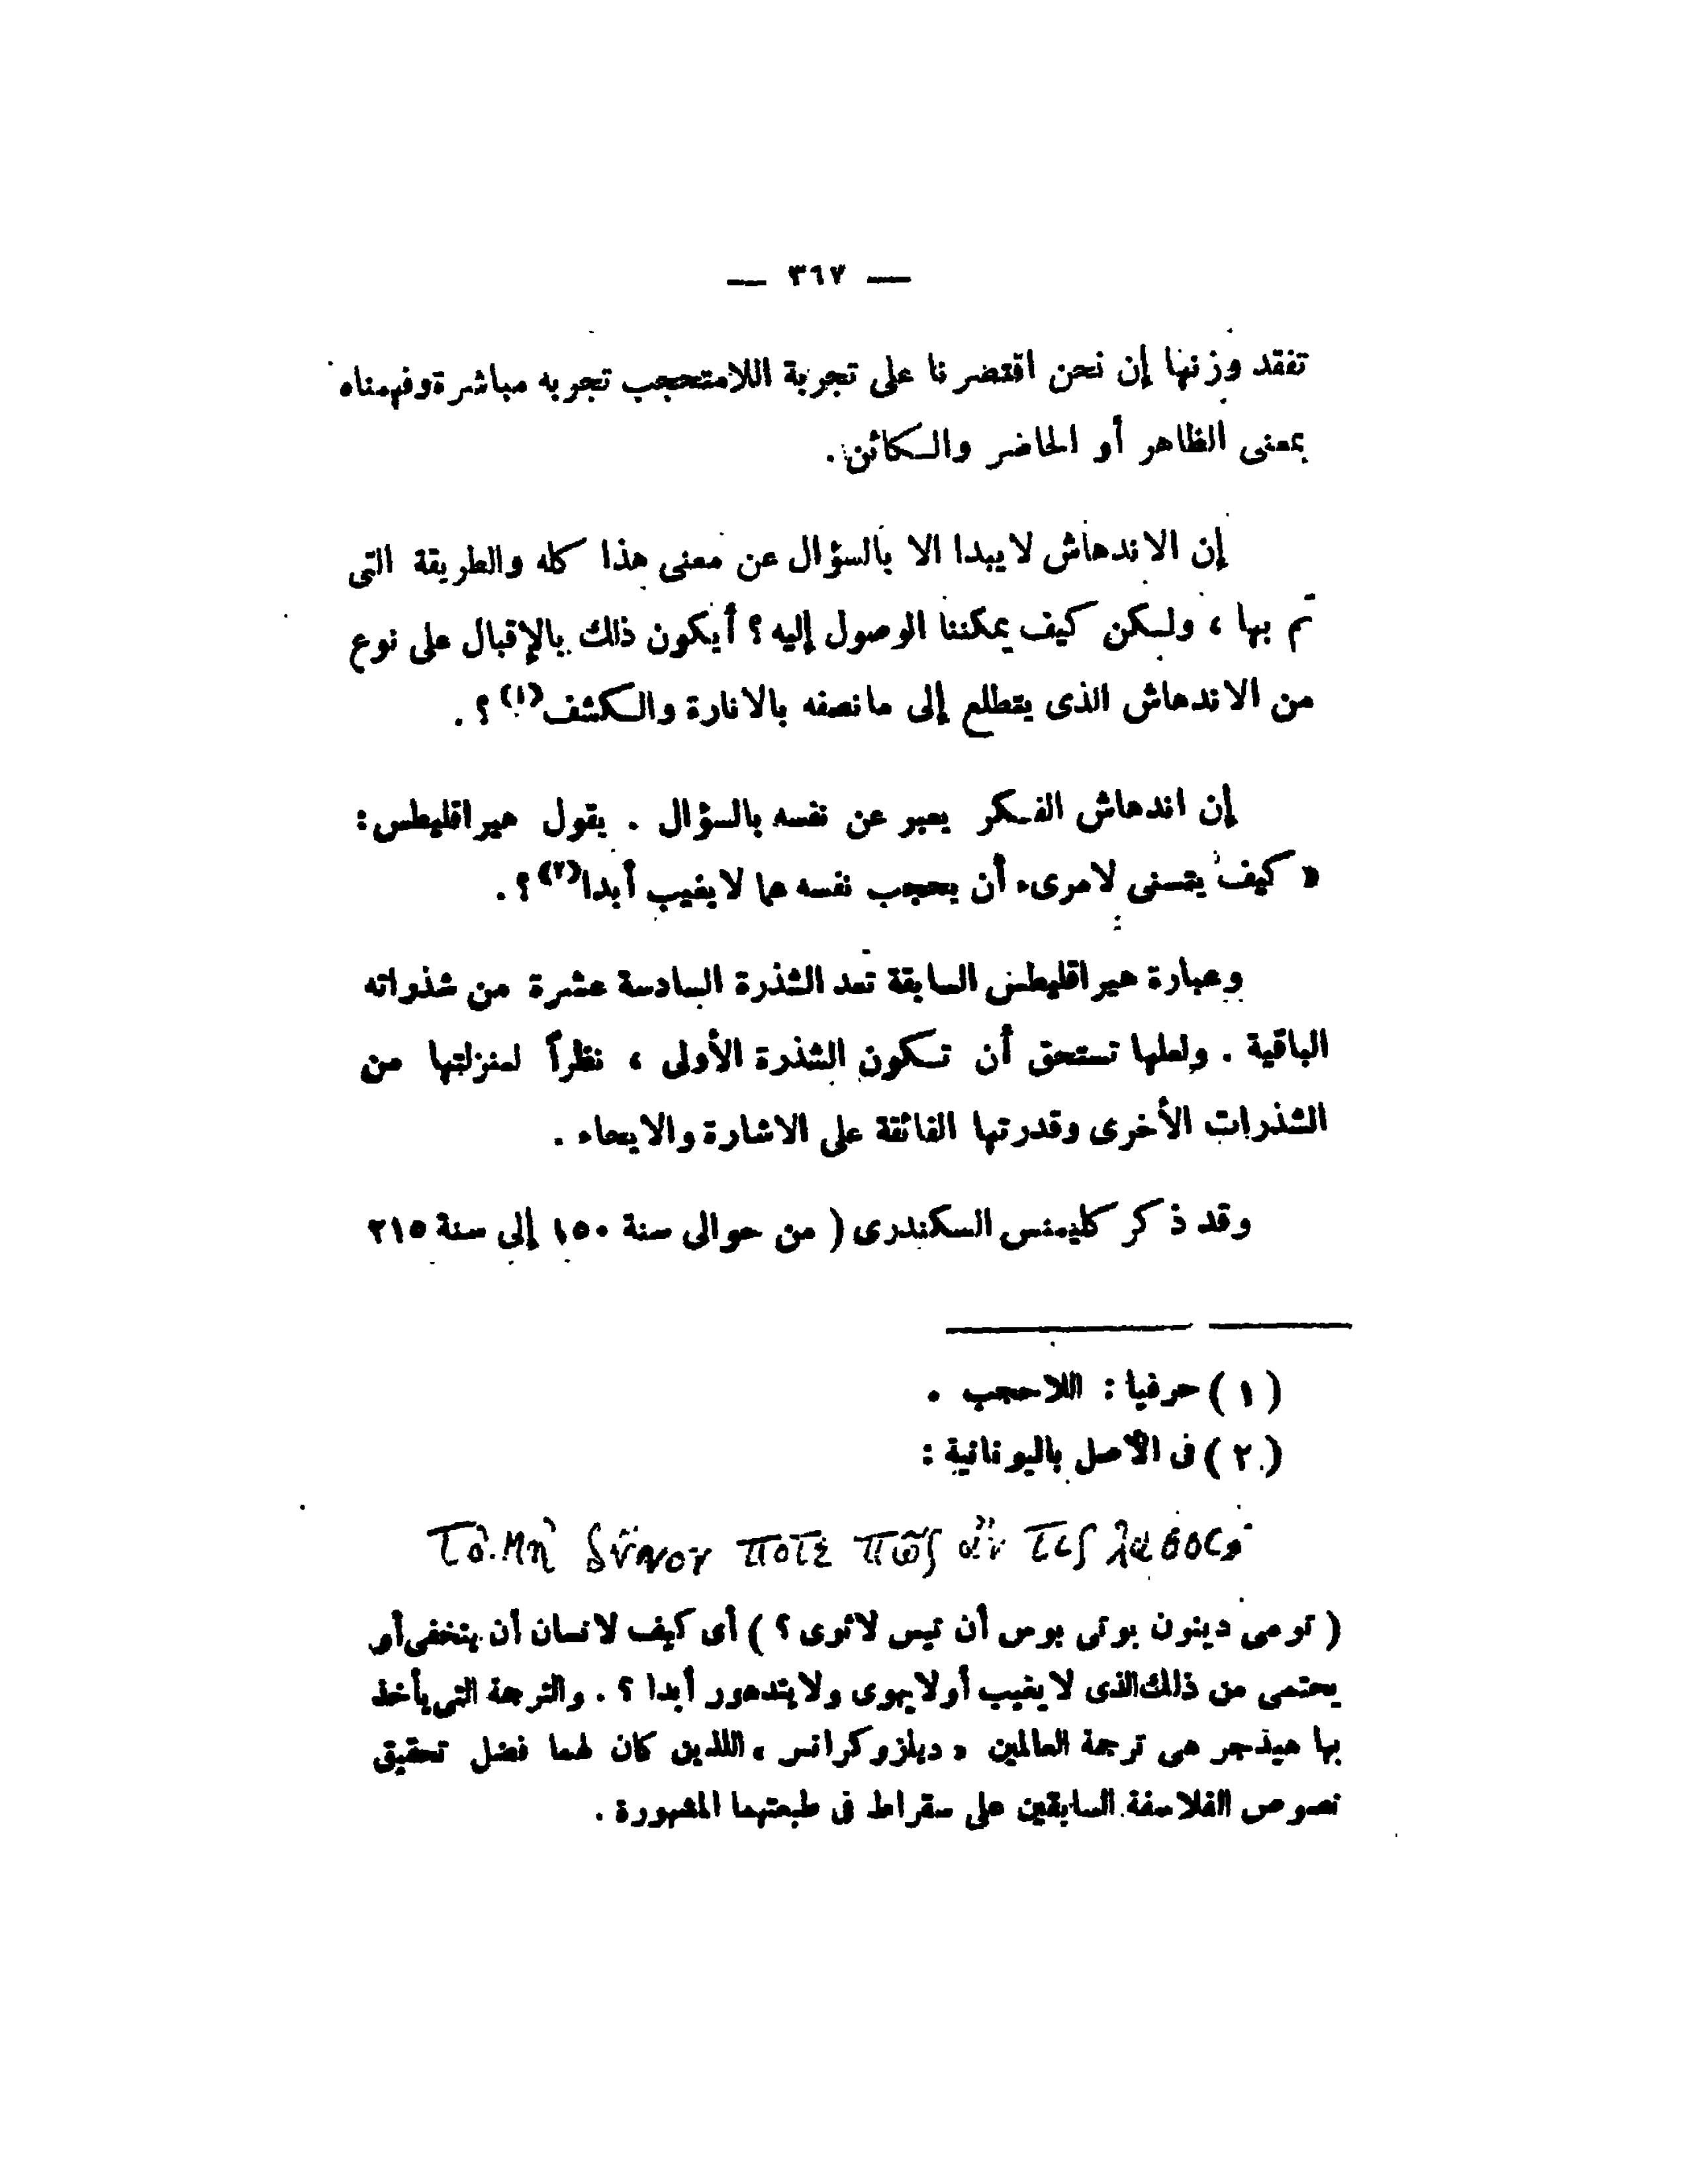 — ٣٦٧ —
تفقد وزنها إن نحن اقتصرنا على تجربة اللامتحجب تجربه مباشرة وفهمناه
بمعنى الظاهر أو الحاضر والكائن .
إن الاندهاش لا يبدا الا بالسؤال عن معنى هذا كله والطريقة التى
تم بها ، ولكن كيف يمكننا الوصول إليه ؟ أيكون ذلك بالإقبال على نوع
من الاندهاش الذى يتطلع إلى ما نصفه بالانارة والكشف (١) ؟ .
إن اندهاش الفكر يعبر عن نفسه بالسؤال . يقول هيراقليطس :
« كيف يتسنى لامرىء أن يحجب نفسه عما لا يغيب أبدا (٢) ؟ .
وعبارة هيراقليطس السابقة تعد الشذرة السادسة عشرة من شذراته
الباقية . ولعلها تستحق أن تكون الشذرة الأولى ، نظراً لمنزلتها من
الشذرات الأخرى وقدرتها الفائقة على الاشارة والايحاء .
وقد ذكر كليمنس السكندرى ( من حوالى سنة ١٥٠ إلى سنة ٢١٥
( ١ ) حرفيا : اللاحجب .
( ٢ ) فى الأصل باليونانية :
Τὸ μὴ δῦνον ποτε πῶς ἄν τις λάθοι
( تومى دينون بوتى بوس أن تيس لاثوى ؟ ) أى كيف لانسان أن يتخفى أو
يحتمى من ذلك الذى لا يغيب أو لا يهوى ولا يتدهور أبدا ؟ . والترجمة التى يأخذ
بها هيدجر هى ترجمة العالمين « ديلز وكرانس » اللذين كان لهما فضل تحقيق
نصوص الفلاسفة السابقين على سقراط فى طبعتهما المشهورة .